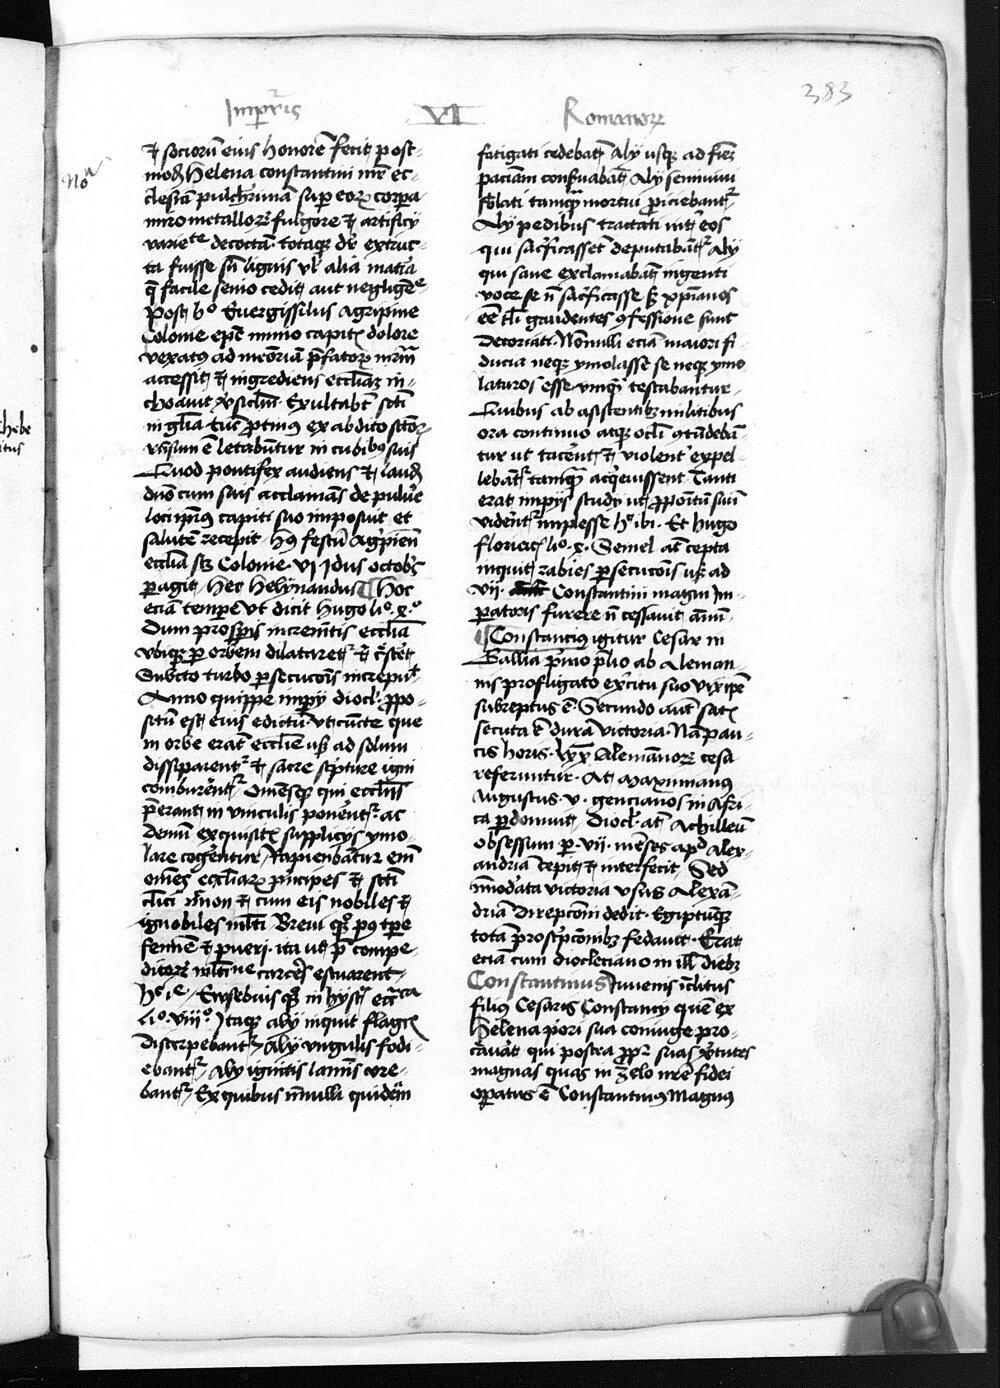 383
Imperatoris VII Romanorum
Noa
et sociorum eius honorem fecit post-
modum helena constantini mater ec-
clesiam pulcherrimam super eorum corpora
miro metallorum fulgore et artificij
varietate decoctam totamque de extruc-
ta fuisse sine lignis vel alia materia
que facile senio cedit aut negligente
Post hoc Euergissilus Agripine
Colonie episcopus nimio capitis dolore
vexatus ad memoriam prefatorum martirum
accessit et ingrediens ecclesiam in-
choauit versiculum Exultabunt sancti
in gloria tunc protinus ex abdito sanctorum
responsum est letabuntur in cubilibus suis
Quod pontifex audiens et laudes
deo cum suis acclamans de puluere
loci ipsius capiti suo imposuit et
salutem recepit hoc festum Agripiensis
ecclesia scilicet Colonie VI Idus octobris
peragit hec helynandus Hoc
eciam tempore vt dicit hugo lio x o
Dum prosperis incrementis ecclesia
vbique per orbem dilataretur et cresceret
Subito turbo persecucionis increpuit
Anno quippe imperij diocl propo-
situm est eius edictum vt cuncte que
in orbe erant ecclesie vsque ad solum
dissiparentur et sacre scripture igni
comburerentur Omnesque qui ecclesiis
preerant in vinculis ponerentur ac
demum exquisitis supplicijs ymo-
lare cogerentur Rapiebantur enim
omnes ecclesiarum principes et sancti
clerici necnon et cum eis nobiles et
ignobiles multi Breui quoque post tempore
femine et pueri ita ut pre compe-
ditorum multitudine carceres estuarent
Eusebius quoque in hystoria ecclesiastica
lio viii o Itaque alij inquit flagris
discerpebantur alij vngulis fodi-
ebantur alij ignitis laminis tore-
bantur Ex quibus nonnulli quidem
fatigati cedebant alij usque ad finem
paciam conseruabant Alij semiuiui
sublati tamquam mortui proiciebantur
Alij pedibus tractati inter eos
qui sacrificassent deputabantur Alij
qui sane exclamabant ingenti
voce se non sacrificasse sed xpianos
esse tali gaudentes confessione sunt
decoriati Nonnulli eciam maiori fi-
ducia neque ymolasse se neque ymo
laturos esse vmquam testabantur
Quibus ab assistentibus militibus
ora continuo atque oculi contundeban-
tur ut tacerent et violenter expel-
lebantur tamquam acquieuissent Tanti
erat impijs studij ut propositum suum
viderentur implesse hec ibi Et hugo
floriacensis lio x Semel autem cepta
inquit rabies persecucionis vsque ad
vii Constantini magni Im-
peratoris furere non cessauit annum
Constancius igitur Cesar in
Gallia primo prelio ab Aleman-
nis profligato exercitu suo vix ipse
subreptus est Secundo autem satis
secuta est dura victoria Nam pau-
cis horis lx Alemannorum cesa
referuntur At Maximianus
Augustus v gencianos in Afri-
ca perdomuit diocl autem Achilleum
obsessum per vii menses apud Alex-
andriam cepit et interfecit Sed
inmoderata victoria vsus Alexan-
driam direpcioni dedit Egiptumque
totam proscripcionibus fedauit Erat
eciam cum diocleciano in illis diebus
Constantinus Iuuenis inclitus
filius Cesaris Constancij quem ex
helena priori sua coniuge pro-
creauerat qui postea propter suas virtutes
magnas quas in zelo nostre fidei
operatus est Constantinus Magnus